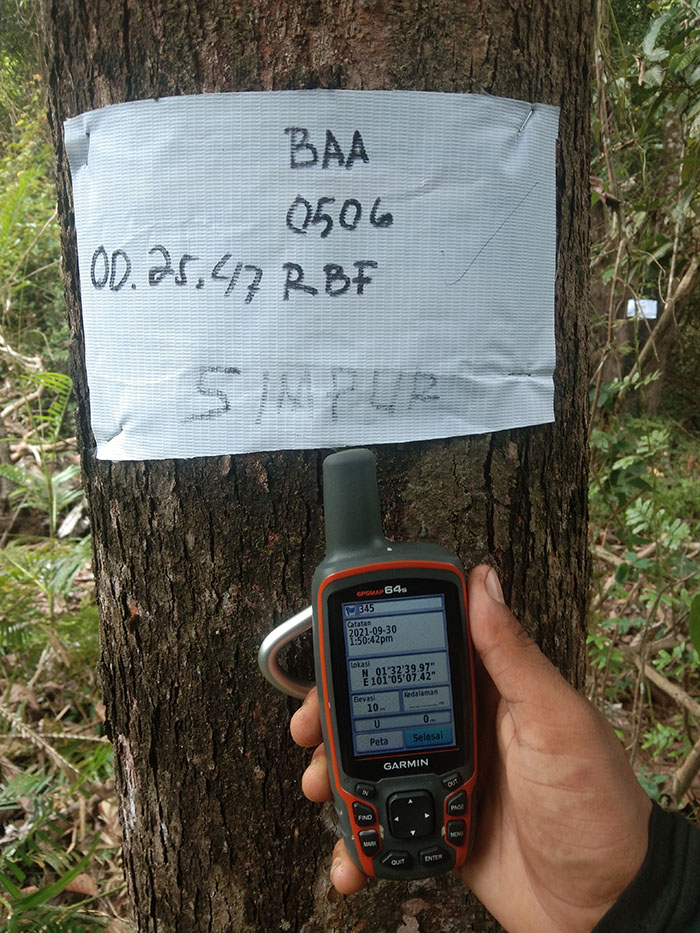 BAA
0506
OD. 25.47 RBF
SIMPUR
GPSMAP 64s
345
Catatan
2021-09-30
1:50:42pm
Lokasi
N 01°32'39.97"
E 101°05'07.42"
Elevasi Kedalaman
10 m
U 0m
Peta Selesai
GARMIN
IN OUT
FIND PAGE
MARK MENU
QUIT ENTER